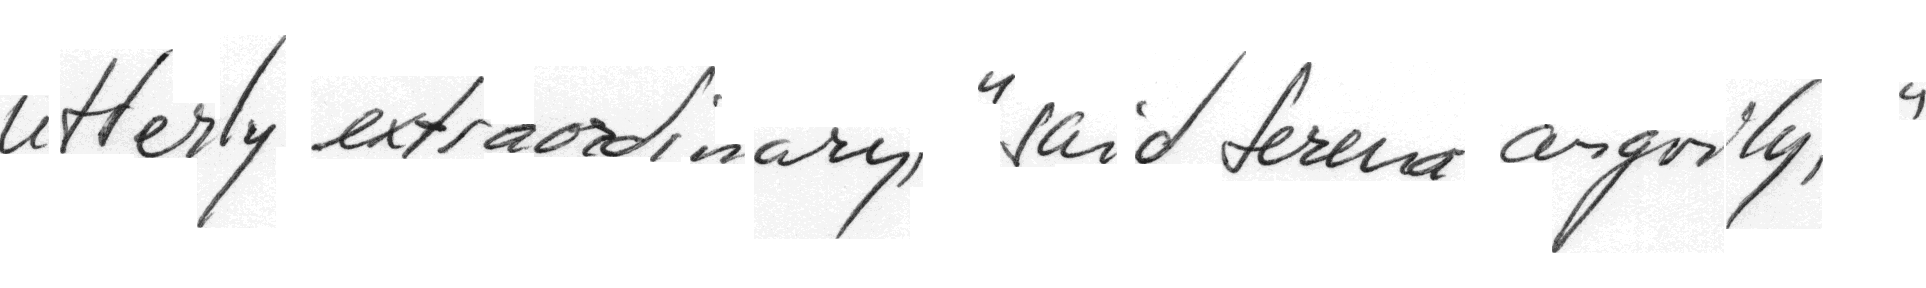 utterly extraordinary, " said Serena angrily, "